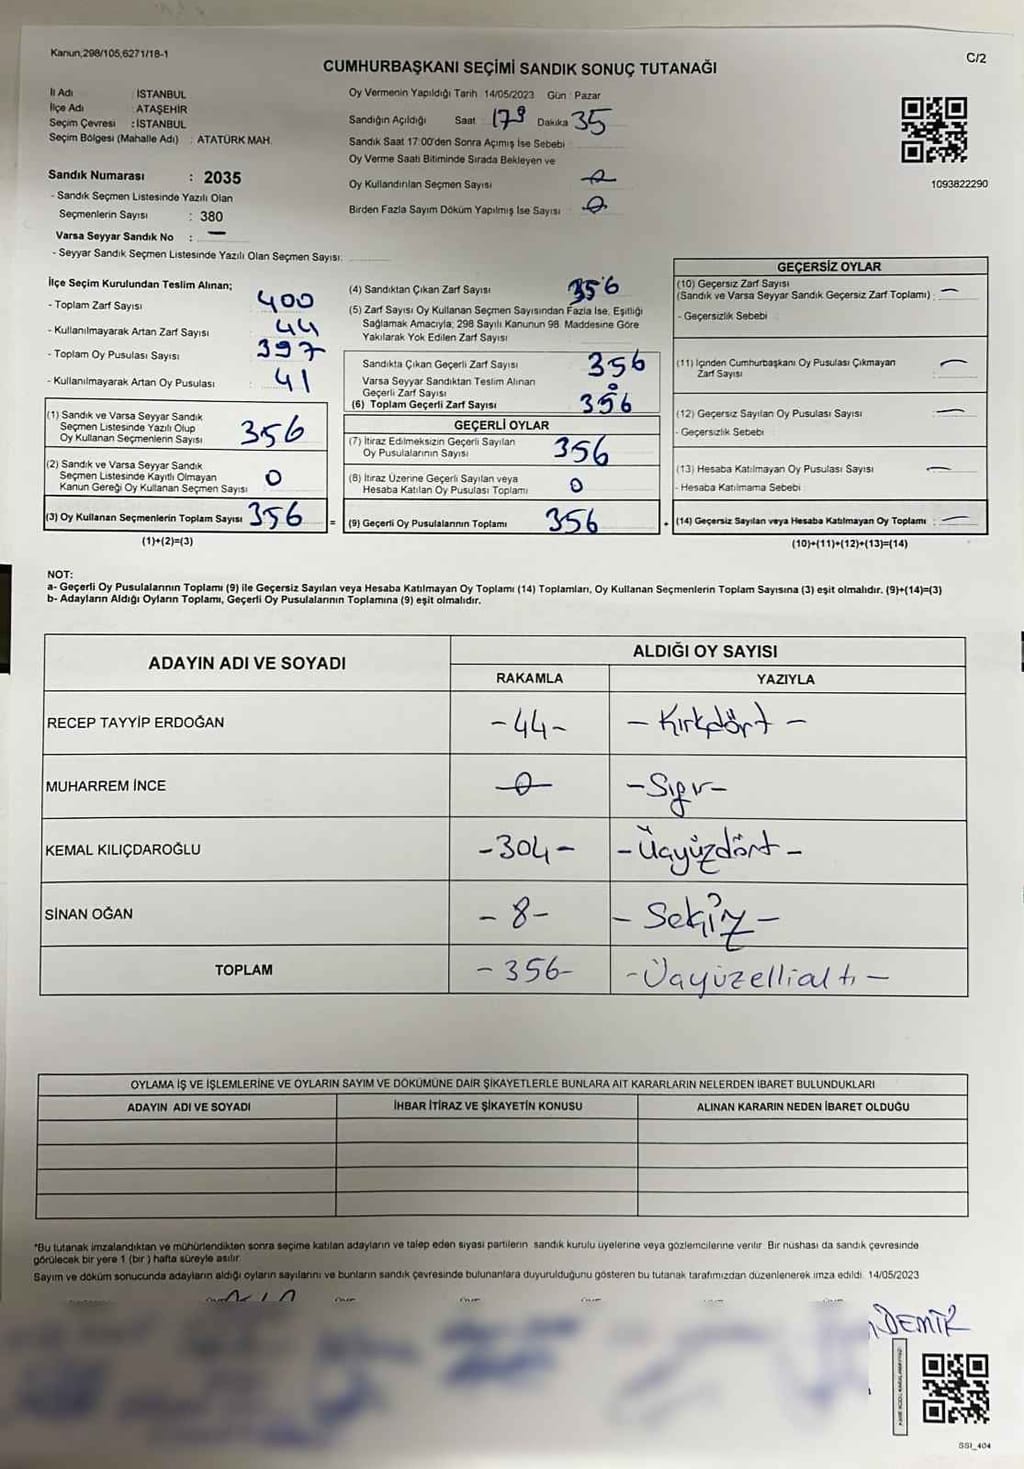 Kanun,298/105,6271/18-1
C/2
CUMHURBAŞKANI SEÇİMİ SANDIK SONUÇ TUTANAĞI
İl Adı : İSTANBUL
İlçe Adı : ATAŞEHİR
Seçim Çevresi : İSTANBUL
Seçim Bölgesi (Mahalle Adı) : ATATÜRK MAH.
Sandık Numarası : 2035
- Sandık Seçmen Listesinde Yazılı Olan
Seçmenlerin Sayısı : 380
Varsa Seyyar Sandık No : —
- Seyyar Sandık Seçmen Listesinde Yazılı Olan Seçmen Sayısı:
Oy Vermenin Yapıldığı Tarih 14/05/2023 Gün : Pazar
Sandığın Açıldığı Saat 17 Dakika 35
Sandık Saat 17:00'den Sonra Açımış İse Sebebi
Oy Verme Saati Bitiminde Sırada Bekleyen ve
Oy Kullandırılan Seçmen Sayısı
Birden Fazla Sayım Döküm Yapılmış İse Sayısı
1093822290
İlçe Seçim Kurulundan Teslim Alınan;
- Toplam Zarf Sayısı : 400
- Kullanılmayarak Artan Zarf Sayısı : 44
- Toplam Oy Pusulası Sayısı : 397
- Kullanılmayarak Artan Oy Pusulası : 41
(1) Sandık ve Varsa Seyyar Sandık
Seçmen Listesinde Yazılı Olup
Oy Kullanan Seçmenlerin Sayısı 356
(2) Sandık ve Varsa Seyyar Sandık
Seçmen Listesinde Kayıtlı Olmayan
Kanun Gereği Oy Kullanan Seçmen Sayısı 0
(3) Oy Kullanan Seçmenlerin Toplam Sayısı 356
(1)+(2)=(3)
(4) Sandıktan Çıkan Zarf Sayısı 356
(5) Zarf Sayısı Oy Kullanan Seçmen Sayısından Fazla İse, Eşitliği
Sağlamak Amacıyla; 298 Sayılı Kanunun 98. Maddesine Göre
Yakılarak Yok Edilen Zarf Sayısı
Sandıkta Çıkan Geçerli Zarf Sayısı 356
Varsa Seyyar Sandıktan Teslim Alınan
Geçerli Zarf Sayısı 0
(6) Toplam Geçerli Zarf Sayısı 356
GEÇERLİ OYLAR
(7) İtiraz Edilmeksizin Geçerli Sayılan
Oy Pusulalarının Sayısı 356
(8) İtiraz Üzerine Geçerli Sayılan veya
Hesaba Katılan Oy Pusulası Toplamı 0
= (9) Geçerli Oy Pusulalarının Toplamı 356
GEÇERSİZ OYLAR
(10) Geçersiz Zarf Sayısı
(Sandık ve Varsa Seyyar Sandık Geçersiz Zarf Toplamı) : —
- Geçersizlik Sebebi
(11) İçinden Cumhurbaşkanı Oy Pusulası Çıkmayan
Zarf Sayısı —
(12) Geçersiz Sayılan Oy Pusulası Sayısı —
- Geçersizlik Sebebi
(13) Hesaba Katılmayan Oy Pusulası Sayısı —
- Hesaba Katılmama Sebebi
+ (14) Geçersiz Sayılan veya Hesaba Katılmayan Oy Toplamı : —
(10)+(11)+(12)+(13)=(14)
NOT:
a- Geçerli Oy Pusulalarının Toplamı (9) ile Geçersiz Sayılan veya Hesaba Katılmayan Oy Toplamı (14) Toplamları, Oy Kullanan Seçmenlerin Toplam Sayısına (3) eşit olmalıdır. (9)+(14)=(3)
b- Adayların Aldığı Oyların Toplamı, Geçerli Oy Pusulalarının Toplamına (9) eşit olmalıdır.
ADAYIN ADI VE SOYADI
ALDIĞI OY SAYISI
RAKAMLA YAZIYLA
RECEP TAYYİP ERDOĞAN -44- - Kırkdört -
MUHARREM İNCE -0- -Sıfır-
KEMAL KILIÇDAROĞLU -304- - Üçyüzdört -
SİNAN OĞAN - 8- - Sekiz -
TOPLAM - 356- -Üçyüzellialtı -
OYLAMA İŞ VE İŞLEMLERİNE VE OYLARIN SAYIM VE DÖKÜMÜNE DAİR ŞİKAYETLERLE BUNLARA AİT KARARLARIN NELERDEN İBARET BULUNDUKLARI
ADAYIN ADI VE SOYADI İHBAR İTİRAZ VE ŞİKAYETİN KONUSU ALINAN KARARIN NEDEN İBARET OLDUĞU
*Bu tutanak imzalandıktan ve mühürlendikten sonra seçime katılan adayların ve talep eden siyasi partilerin sandık kurulu üyelerine veya gözlemcilerine verilir. Bir nüshası da sandık çevresinde
görülecek bir yere 1 (bir ) hafta süreyle asılır.
Sayım ve döküm sonucunda adayların aldığı oyların sayılarını ve bunların sandık çevresinde bulunanlara duyurulduğunu gösteren bu tutanak tarafımızdan düzenlenerek imza edildi. 14/05/2023
DEMİR
SSI_404